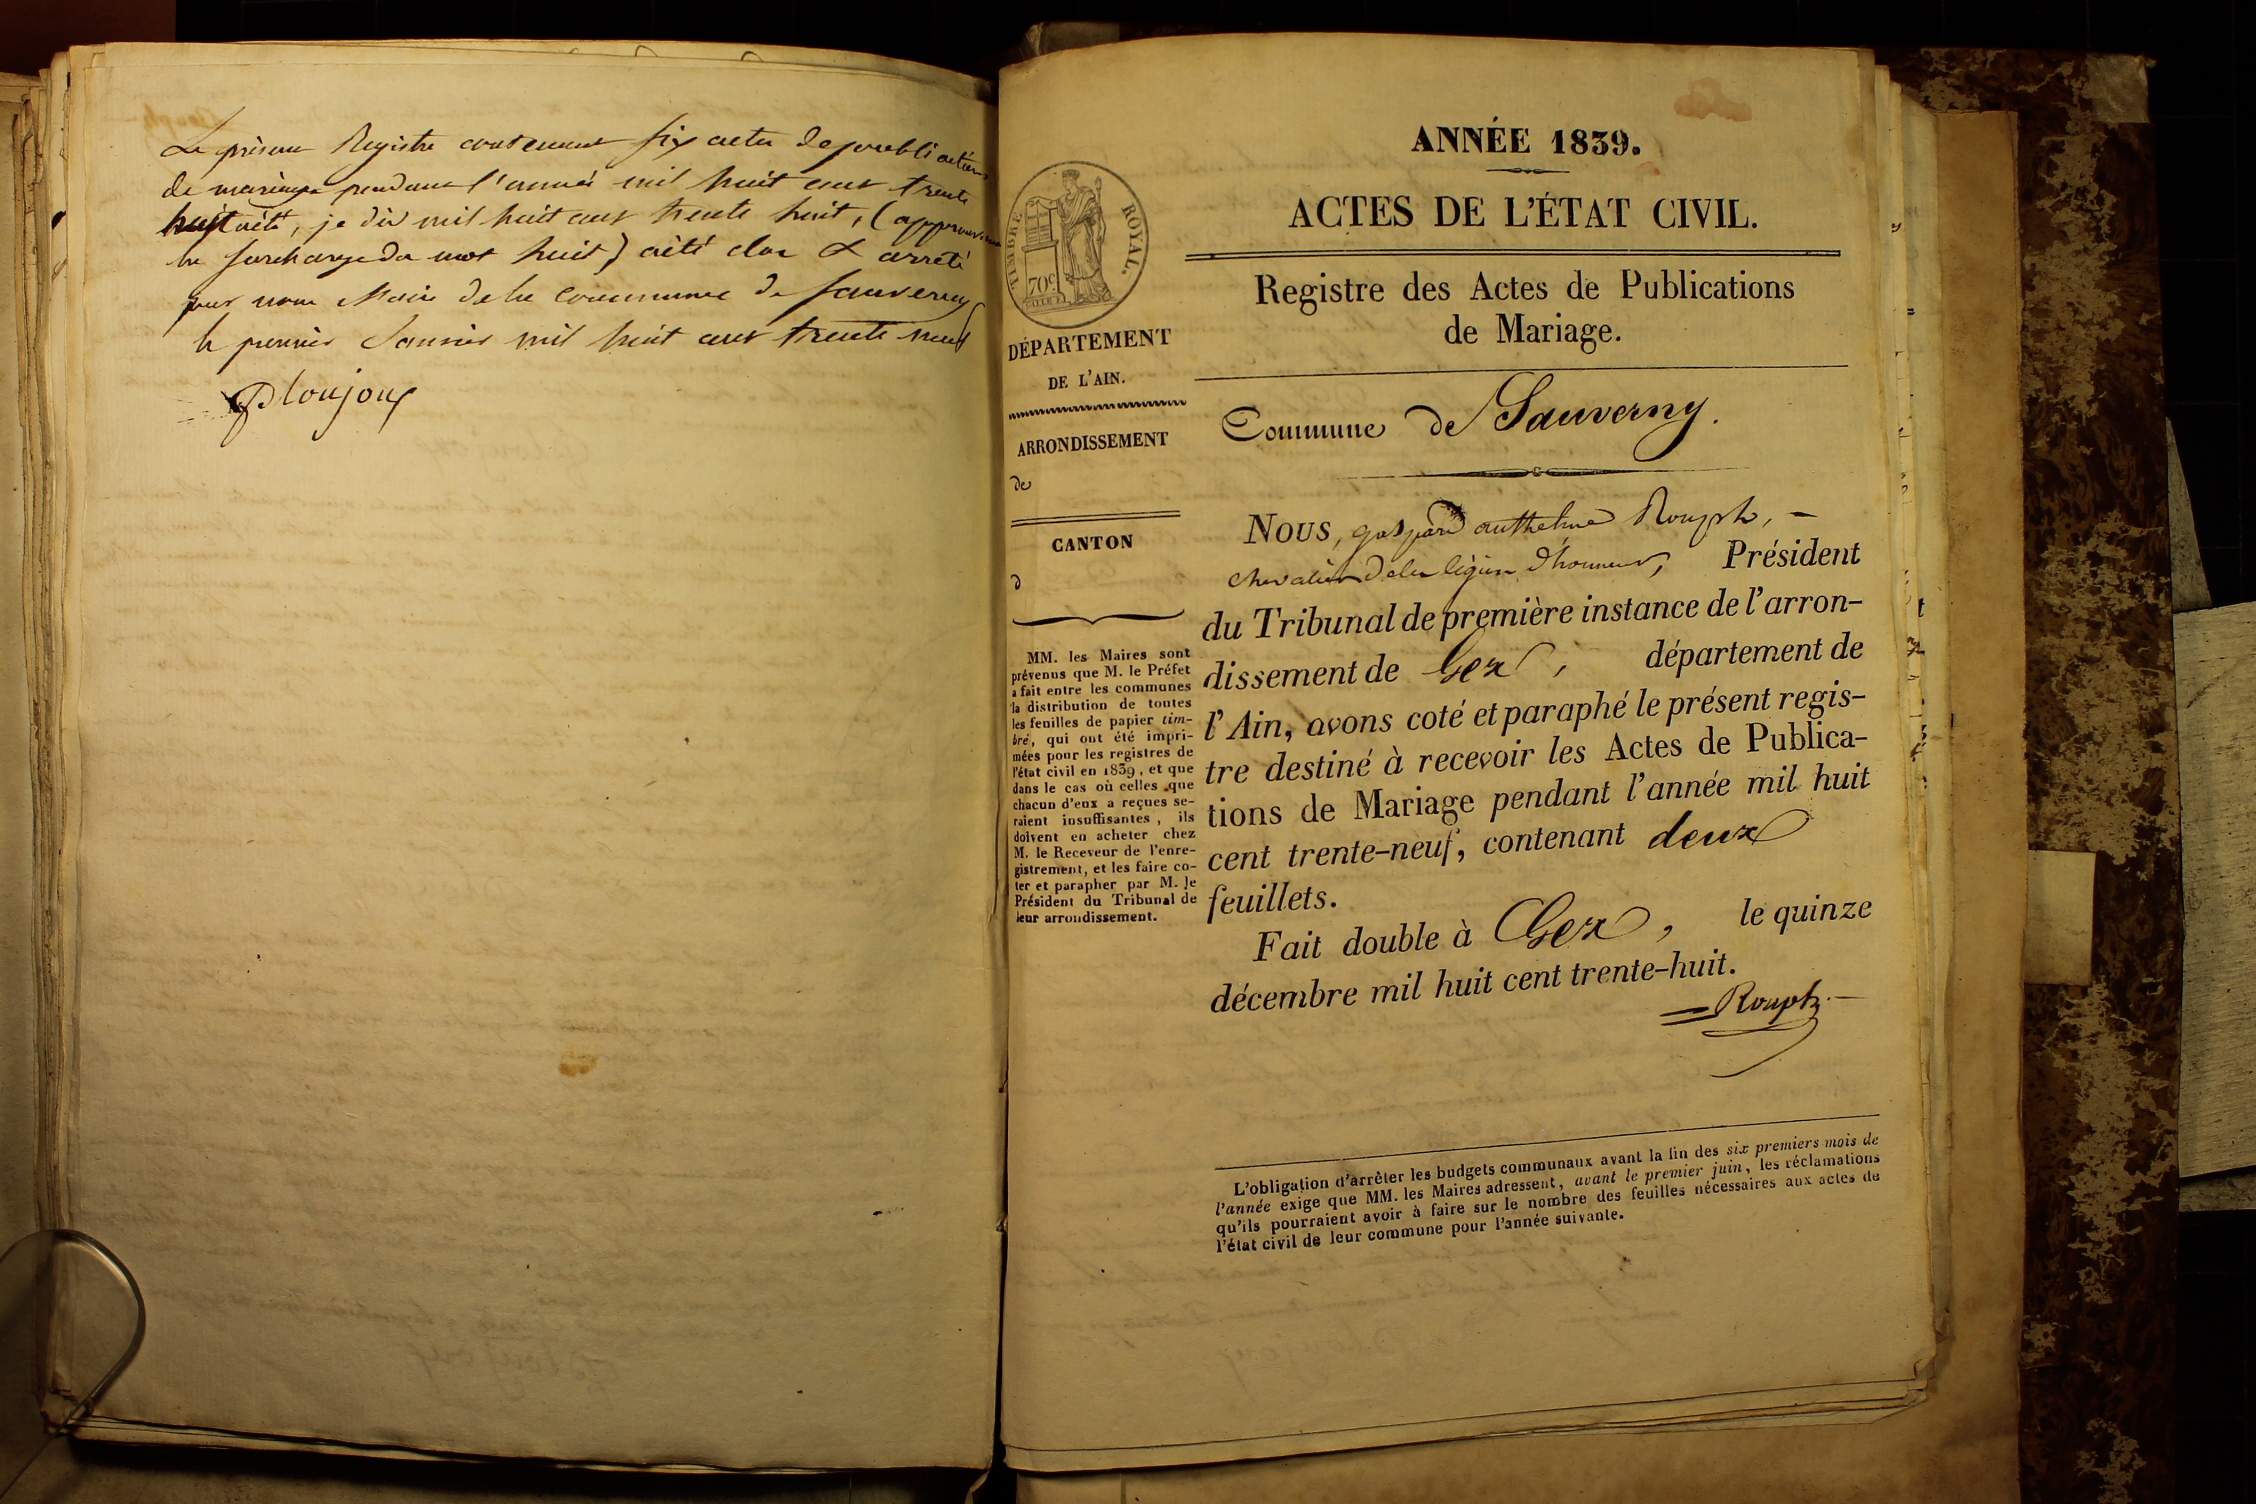 Le présent Registre contenant six actes de publications
de mariage pendant l'année mil huit cent trente
huit, je dis mil huit cent trente huit, (approuvé
la surcharge du mot huit) a été clos & arrêté
par nous Maire de la commune de Sauverny
le premier Janvier mil huit cent trente neuf
Ploujoux
TIMBRE ROYAL.
70c
DÉPARTEMENT
DE L'AIN.
ARRONDISSEMENT
de
CANTON
d
MM. les Maires sont
prévenus que M. le Préfet
a fait entre les communes
la distribution de toutes
les feuilles de papier tim-
bré, qui ont été impri-
mées pour les registres de
l'état civil en 1839, et que
dans le cas où celles que
chacun d'eux a reçues se-
raient insuffisantes, ils
doivent en acheter chez
M. le Receveur de l'enre-
gistrement, et les faire co-
ter et parapher par M. le
Président du Tribunal de
leur arrondissement.
ANNÉE 1839.
ACTES DE L'ÉTAT CIVIL.
Registre des Actes de Publications
de Mariage.
Commune de Sauverny.
NOUS, gaspard anthelme Rouph, -
chevalier de la légion d'honneur, Président
du Tribunal de première instance de l'arron-
dissement de Gex, département de
l'Ain, avons coté et paraphé le présent regis-
tre destiné à recevoir les Actes de Publica-
tions de Mariage pendant l'année mil huit
cent trente-neuf, contenant deux
feuillets.
Fait double à Gex, le quinze
décembre mil huit cent trente-huit.
Rouph
L'obligation d'arrêter les budgets communaux avant la fin des six premiers mois de
l'année exige que MM. les Maires adressent, avant le premier juin, les réclamations
qu'ils pourraient avoir à faire sur le nombre des feuilles nécessaires aux actes de
l'état civil de leur commune pour l'année suivante.